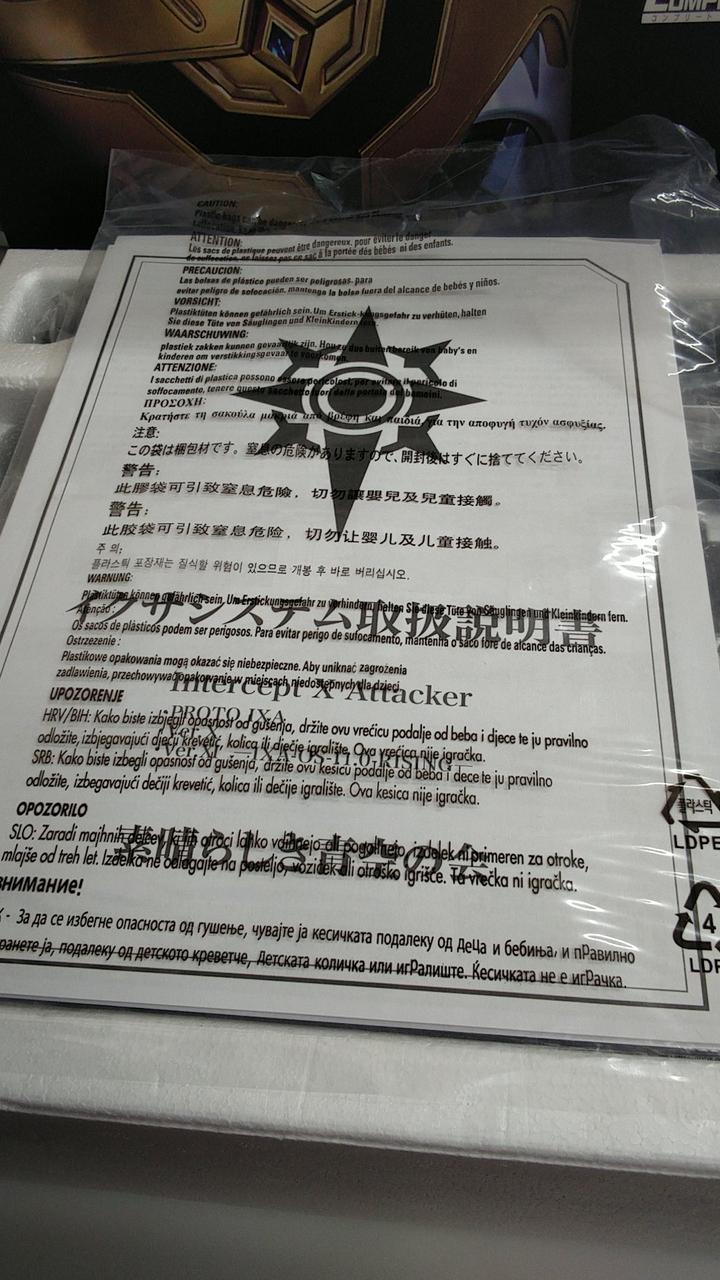 COMPL
コンプリート
CAUTION:
Plastic bags can be dangerous.
ATTENTION:
Les sacs de plastique peuvent être dangereux. pour éviter le danger
de suffocation, ne laissez pas ce sac à la portée dés bébés ni des enfants.
PRECAUCION:
Las bolsas de plástico pueden ser peligrosas. para
evitar peligro de sofocación, mantenga la bolsa fuera del alcance de bebés y niños.
VORSICHT:
Plastiktüten können gefährlich sein. Um Erstick-ungsgefahr zu verhüten, halten
Sie diese Tüte von Säuglingen und KleinKindern fern.
WAARSCHUWING:
plastiek zakken kunnen gevaarlijk zijn. Hou ze dus buiten bereik van baby's en
kinderen om verstikkingsgevaar te voorkomen.
ATTENZIONE:
I sacchetti di plastica possono essere pericolosi, per evitare il pericolo di
soffocamento, tenere questo sacchetto fuori della portata dei bambini.
ΠΡΟΣΟΧΗ:
Κρατήστε τη σακούλα μακριά από βρέφη και παιδιά, για την αποφυγή τυχόν ασφυξίας.
注意:
この袋は梱包材です。窒息の危険がありますので、開封後はすぐに捨ててください。
警告:
此膠袋可引致窒息危險，切勿讓嬰兒及兒童接觸。
警告:
此胶袋可引致窒息危险，切勿让婴儿及儿童接触。
주 의:
플라스틱 포장재는 질식할 위험이 있으므로 개봉 후 바로 버리십시오.
WARNUNG:
Plastiktüten können gefährlich sein, Um Erstickungsgefahr zu verhindern, halten Sie diese Tüte von Säuglingen und Kleinkindern fern.
イクサシステム取扱説明書
Atenção :
Os sacos de plásticos podem ser perigosos. Para evitar perigo de sufocamento, mantenha o saco fore de alcance das crianças.
Ostrzezenie :
Plastikowe opakowania mogą okazać się niebezpieczne. Aby uniknać zagrożenia
zadlawienia, przechowywać opakowanie w miejscach niedostępnych dla dzieci
Intercept X Attacker
UPOZORENJE
PROTO IXA
HRV/BIH: Kako biste izbjegli opasnost od gušenja, držite ovu vrećicu podalje od beba i djece te ju pravilno
Ver.X
odložite, izbjegavajući dječji krevetić, kolica ili dječje igralište. Ova vrećica nije igračka.
Ver.XI —IXA-OS-11.0-RISING—
SRB: Kako biste izbegli opasnost od gušenja, držite ovu kesicu podalje od beba i dece te ju pravilno
odložite, izbegavajući dečiji krevetić, kolica ili dečije igralište. Ova kesica nije igračka.
OPOZORILO
SLO: Zaradi majhnih delcev, ki jih otroci lahko vdihnejo ali pogoltnejo izdelek ni primeren za otroke,
素晴らしき青空の会
mlajše od treh let. Izdelka ne odlagajte na posteljo, voziček ali otroško igrišče. Ta vrečka ni igračka.
внимание!
- За да се избегне опасноста од гушење, чувајте ја кесичката подалеку од деца и бебиња, и правилно
ранете ја, подалеку од детското креветче, детската количка или игралиште. Кесичката не е играчка.
플라스틱
LDPE
4
LDP